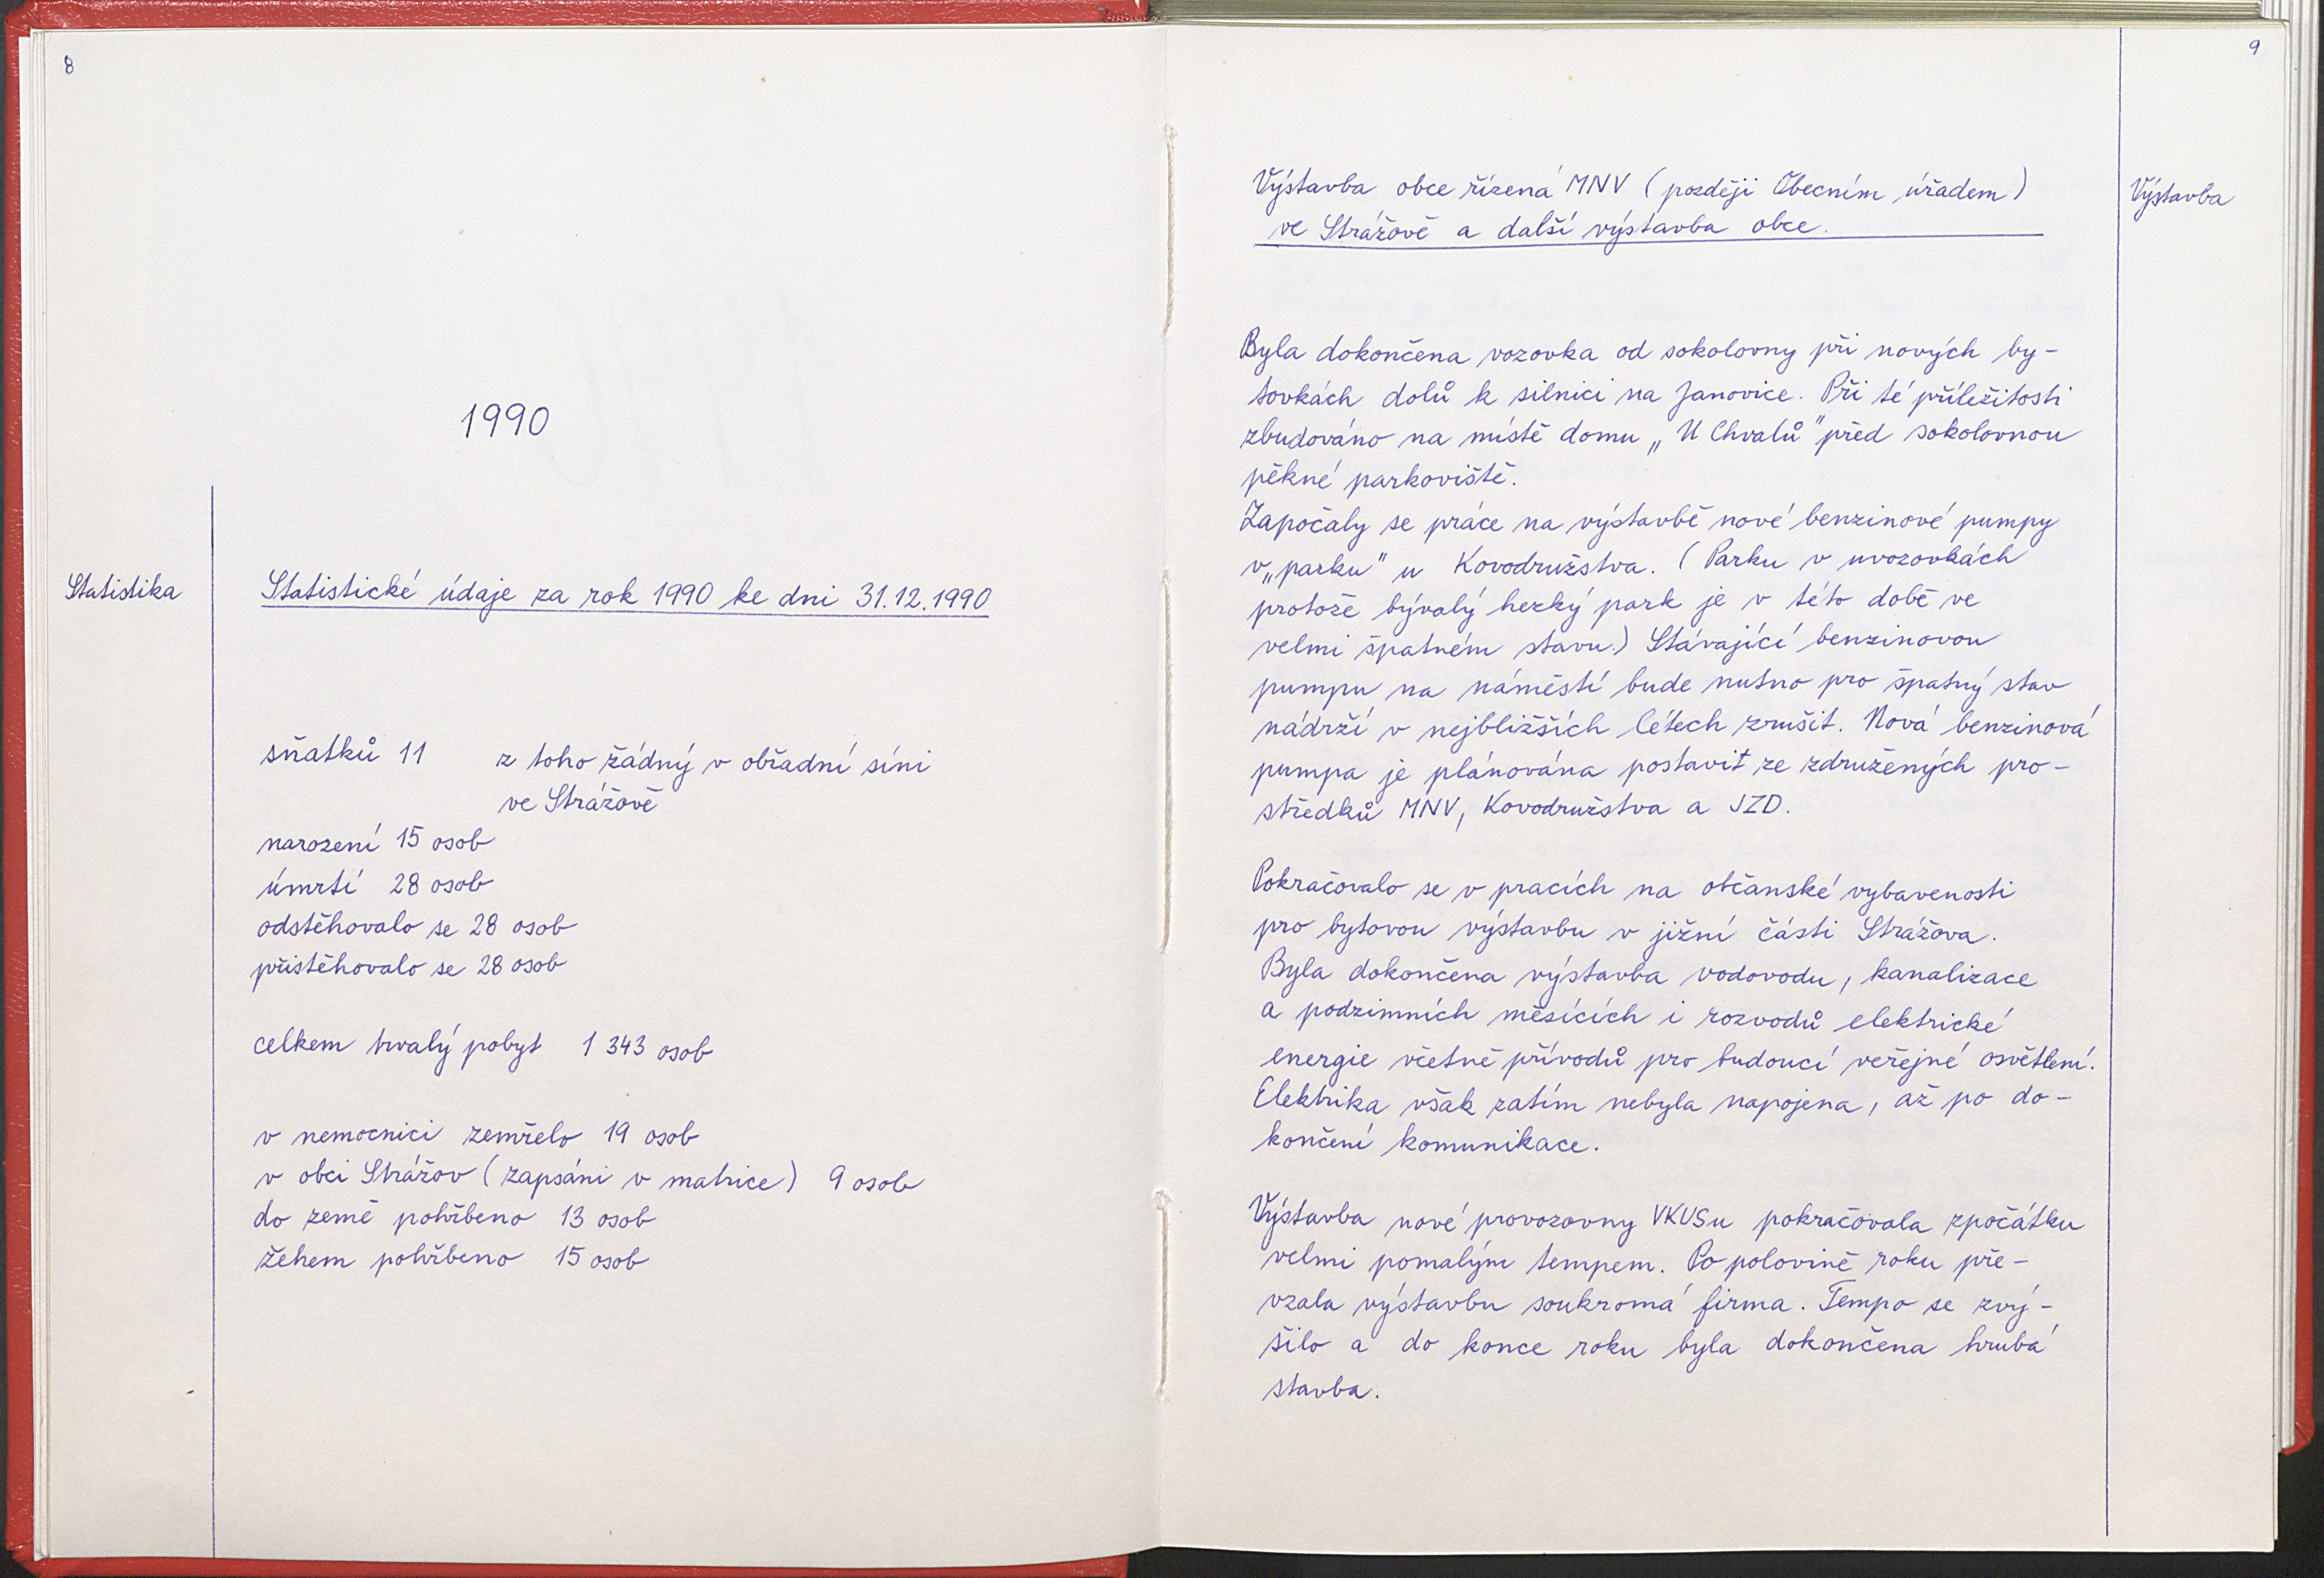 8
1990
Statistika
Statistické údaje za rok 1990 ke dni 31.12.1990
sňatků 11 z toho žádný v obřadní síni
ve Strážově
narození 15 osob
úmrtí 28 osob
odstěhovalo se 28 osob
přistěhovalo se 28 osob
celkem trvalý pobyt 1 343 osob
v nemocnici zemřelo 19 osob
v obci Strážov (zapsáni v matrice) 9 osob
do země pohřbeno 13 osob
žehem pohřbeno 15 osob
9
Výstavba
Výstavba obce řízená MNV (později Obecním úřadem)
ve Strážově a další výstavba obce.
Byla dokončena vozovka od sokolovny při nových by-
tovkách dolů k silnici na Janovice. Při té příležitosti
zbudováno na místě domu „U Chvalů" před sokolovnou
pěkné parkoviště.
Započaly se práce na výstavbě nové benzinové pumpy
v „parku" u Kovodružstva. (Parku v uvozovkách
protože bývalý hezký park je v této době ve
velmi špatném stavu.) Stávající benzinovou
pumpu na náměstí bude nutno pro špatný stav
nádrží v nejbližších létech zrušit. Nová benzinová
pumpa je plánována postavit ze združených pro-
středků MNV, Kovodružstva a JZD.
Pokračovalo se v pracích na občanské vybavenosti
pro bytovou výstavbu v jižní části Strážova.
Byla dokončena výstavba vodovodu, kanalizace
a podzimních měsících i rozvodů elektrické
energie včetně přívodů pro budoucí veřejné osvětlení.
Elektrika však zatím nebyla napojena, až po do-
končení komunikace.
Výstavba nové provozovny VKUSu pokračovala zpočátku
velmi pomalým tempem. Po polovině roku pře-
vzala výstavbu soukromá firma. Tempo se zvý-
šilo a do konce roku byla dokončena hrubá
stavba.